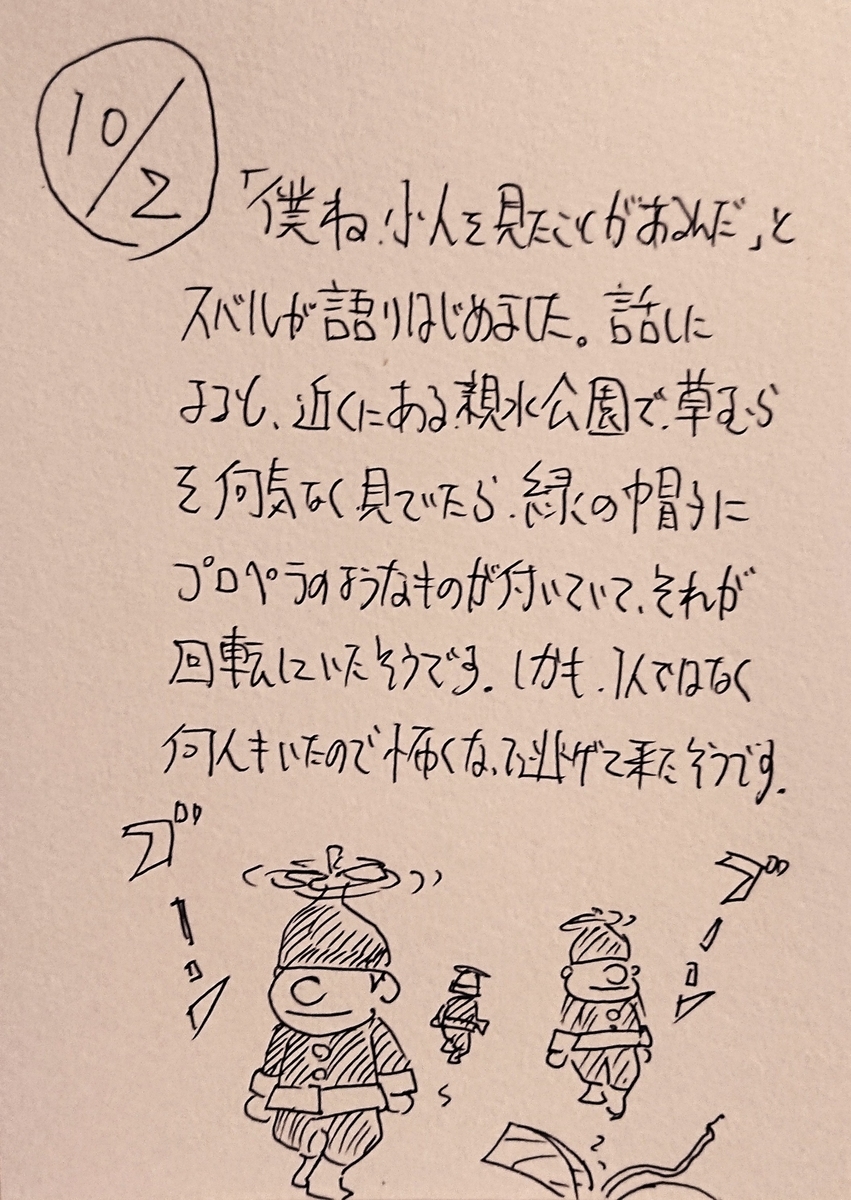 10/2
「僕ね、小人を見たことがあるんだ」と
スバルが語りはじめました。話しに
よると、近くにある親水公園で、草むら
を何気なく見ていたら、緑の帽子に
プロペラのようなものが付いていて、それが
回転していたそうです。しかも、1人ではなく
何人もいたので怖くなって逃げて来たそうです。
ブーン
ブーン